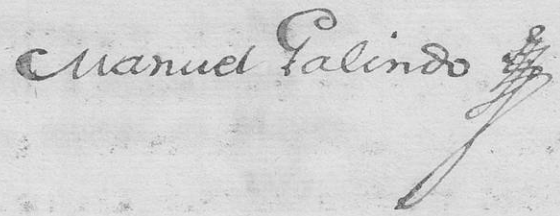 Manuel Galindo